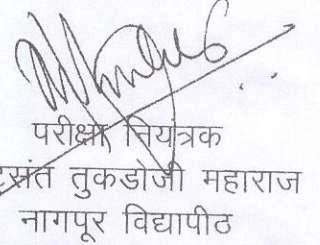 परीक्षा नियंत्रक
ट्रसंत तुकडोजी महाराज
नागपूर विद्यापीठ